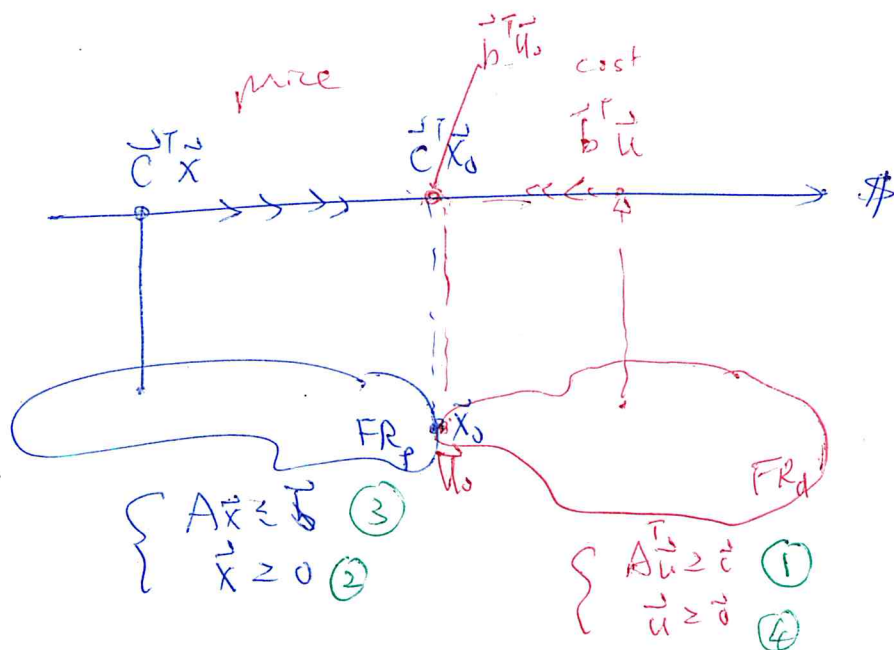 b⃗ᵀu⃗₀
price cost
c⃗ᵀx⃗ c⃗ᵀx⃗₀ b⃗ᵀu⃗
$
FRₚ x⃗₀
u⃗₀ FR_d
{ Ax⃗ ≤ b⃗ ③
x⃗ ≥ 0 ②
{ Aᵀu⃗ ≥ c⃗ ①
u⃗ ≥ 0⃗ ④